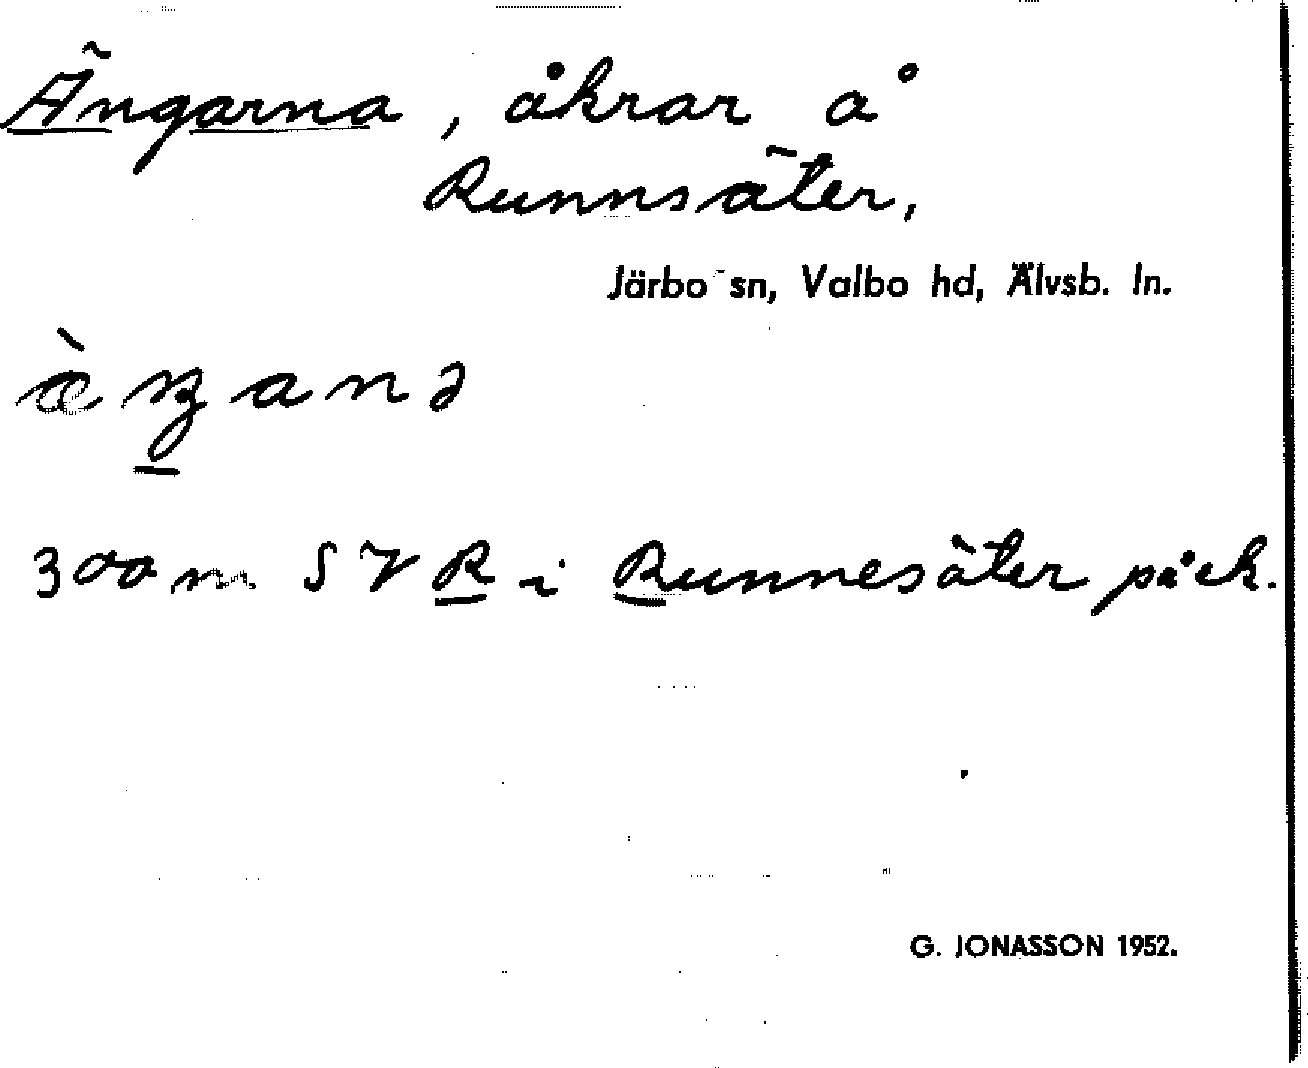 Ängarna, åkrar å
Runnsäter,
Järbo sn, Valbo hd, Älvsb. ln.
300 m SV R i Runnesäter på ek.
G. JONASSON 1952.